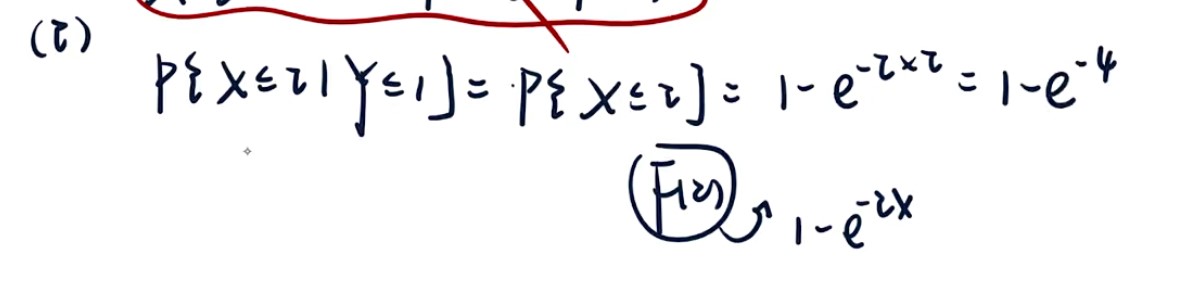 (2)
P{X≤2|Y≤1}=P{X≤2}=1-e^{-2×2}=1-e^{-4}
F(2) 1-e^{-2x}